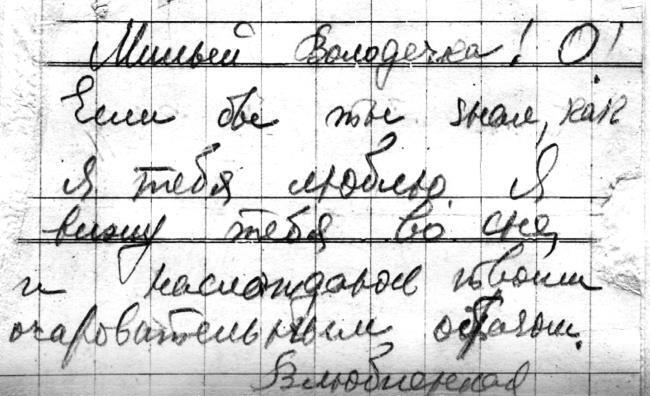 Милый Володечка! О!
Если бы ты знал, как
я тебя люблю. Я
вижу тебя во сне,
и наслаждаюсь твоим
очаровательным образом.
Влюбленная